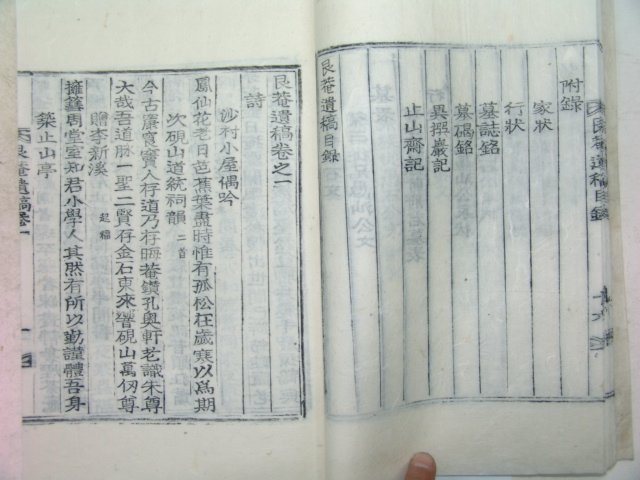 附錄
家狀
行狀
墓誌銘
墓碣銘
異撰巖記
止山齋記
艮菴遺稿目錄
艮菴遺稿卷之一
詩
沙村小屋偶吟
鳳仙花老日芭蕉葉盡時惟有孤松在歲寒以爲期
次硯山道統祠韻 二首
今古廉賓賓人存道乃存晦菴鑽孔奧軒老識朱尊
大哉吾道脉一聖二賢存金石東來響硯山萬仞尊
贈李新溪 起福
擁篲周堂室知君小學人其然有所以勤謹體吾身
築止山亭
艮菴遺稿卷一